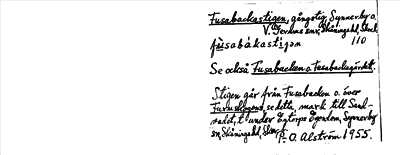 Fusabackastigen, gångstig, Synnerby o.
V. Jerkens sn, Skåningshd, Skbl.
fùsabákastigən 110
Se också Fusabacken o. Fusabacksgärdet.
Stigen går från Fusabacken o. över
se detta, mark till Sand-
under Ögtorps ägendom, Synnerby
sn, Skåningshd, O. Alström 1955.